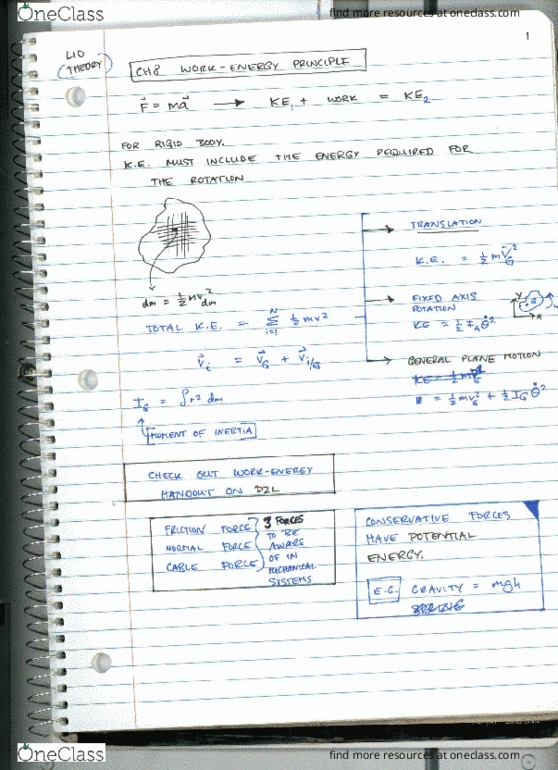 OneClass
find more resources at oneclass.com
1
L10
(THEORY)
CH8 WORK-ENERGY PRINCIPLE
F⃗ = ma⃗ → KE₁ + WORK = KE₂
FOR RIGID BODY.
K.E. MUST INCLUDE THE ENERGY REQUIRED FOR
THE ROTATION
dm = ½ mv²dm
TOTAL K.E. = Σ ½ mv²
N
i=1
v⃗i = v⃗G + v⃗i/G
IG = ∫r² dm
MOMENT OF INERTIA
TRANSLATION
K.E. = ½ mv̄G²
FIXED AXIS
ROTATION
KE = ½ IAθ̇²
Y
G
X
GENERAL PLANE MOTION
KE = ½ m
= ½ mvG² + ½ IG θ̇²
CHECK OUT WORK-ENERGY
HANDOUT ON D2L
FRICTION FORCE
NORMAL FORCE
CABLE FORCE
3 FORCES
TO BE
AWARE
OF IN
MECHANICAL
SYSTEMS
CONSERVATIVE FORCES
HAVE POTENTIAL
ENERGY.
E.G. GRAVITY = mgh
SPRING
OneClass
find more resources at oneclass.com